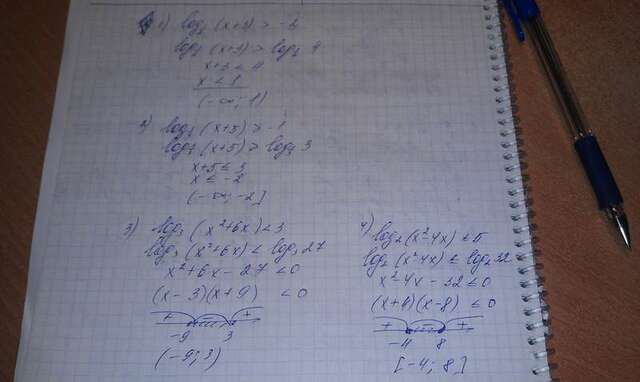 1) log₂ (x+3) > -2
log₂ (x+3) > log₂ 4
x+3 < 4
x < 1
(-∞; 1)
2) (x+5) ≥ -1
(x+5) ≥ 3
x+5 ≤ 3
x ≤ -2
(-∞; -2]
3) log₃ (x²+6x) < 3
log₃ (x²+6x) < log₃ 27
x²+6x - 27 < 0
(x-3)(x+9) < 0
+ +
-9 3
(-9; 3)
4) log₂ (x²-4x) ≤ 5
log₂ (x²-4x) ≤ log₂ 32
x²-4x - 32 ≤ 0
(x+4)(x-8) ≤ 0
+ +
-4 8
[-4; 8]